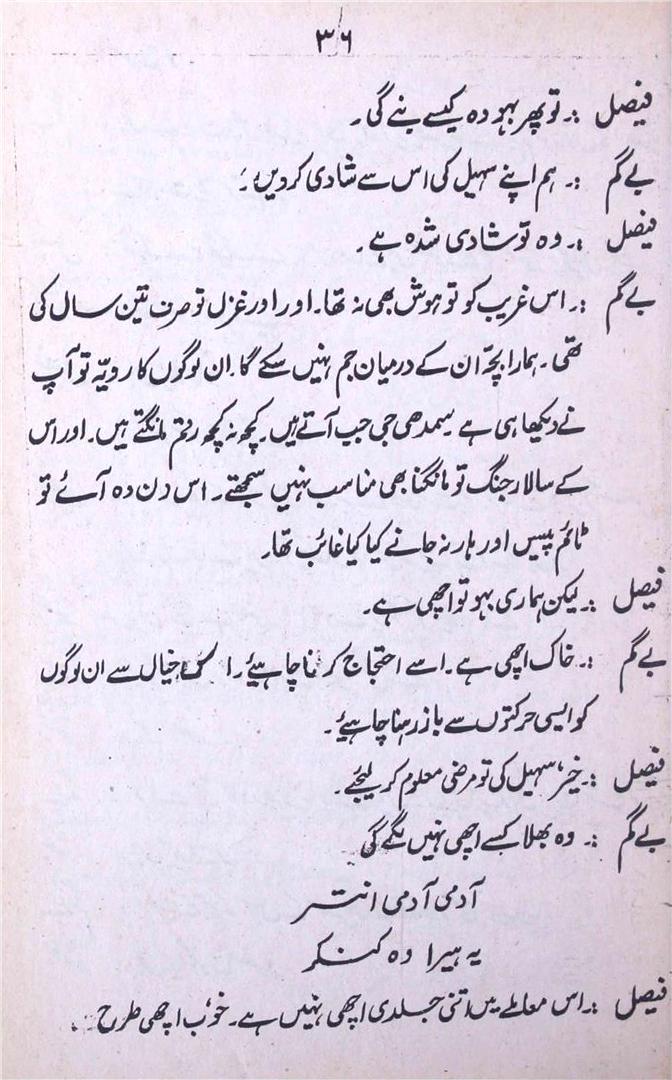 ۳۶
فیصل :۔ تو پھر بہو وہ کیسے بنے گی۔
بے گم :۔ ہم اپنے سہیل کی اس سے شادی کر دیں؟
فیصل :۔ وہ تو شادی شدہ ہے۔
بے گم :۔ اس غریب کو تو ہوش بھی نہ تھا۔ اور اور غزل تو صرف تین سال کی
تھی۔ ہمارا بچّہ ان کے درمیان جم نہیں سکے گا۔ ان لوگوں کا رویّہ تو آپ
نے دیکھا ہی ہے سمدھی جی جب آتے ہیں۔ کچھ نہ کچھ رقم مانگتے ہیں۔ اور اس
کے سالار جنگ تو مانگنا بھی مناسب نہیں سمجھتے۔ اس دن وہ آئے تو
ٹائم پیس اور ہار نہ جانے کیا کیا غائب تھا۔
فیصل :۔ لیکن ہماری بہو تو اچھی ہے۔
بے گم :۔ خاک اچھی ہے۔ اسے احتجاج کرنا چاہیئے۔ خیال سے ان لوگوں
کو ایسی حرکتوں سے باز رہنا چاہیئے۔
فیصل :۔ خیر، سہیل کی تو مرضی معلوم کر لیجئے۔
بے گم :۔ وہ بھلا کسے اچھی نہیں لگے گی
آدمی آدمی انتر
یہ ہیرا وہ کنکر
فیصل :۔ اس معاملے میں اتنی جلدی اچھی نہیں ہے۔ خوب اچھی طرح